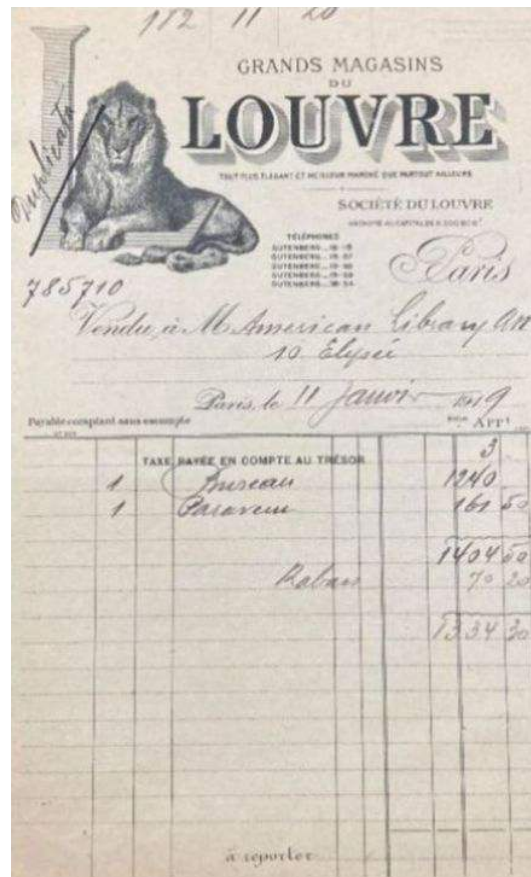 182 11 20
GRANDS MAGASINS
DU
LOUVRE
Duplicata
TOUT PLUS ÉLÉGANT ET MEILLEUR MARCHÉ QUE PARTOUT AILLEURS
SOCIÉTÉ DU LOUVRE
TÉLÉPHONES
GUTENBERG
GUTENBERG
GUTENBERG
GUTENBERG
GUTENBERG
Paris
785710
Vendu à M American Library
10 Elysée
Paris, le 11 Janvier 1919
Payable comptant sans escompte
Arrt
TAXE PAYÉE EN COMPTE AU TRÉSOR 3
1 Bureau 1240
1 Paravent 161 50
1404 50
Rabais 70 20
1334 30
à reporter